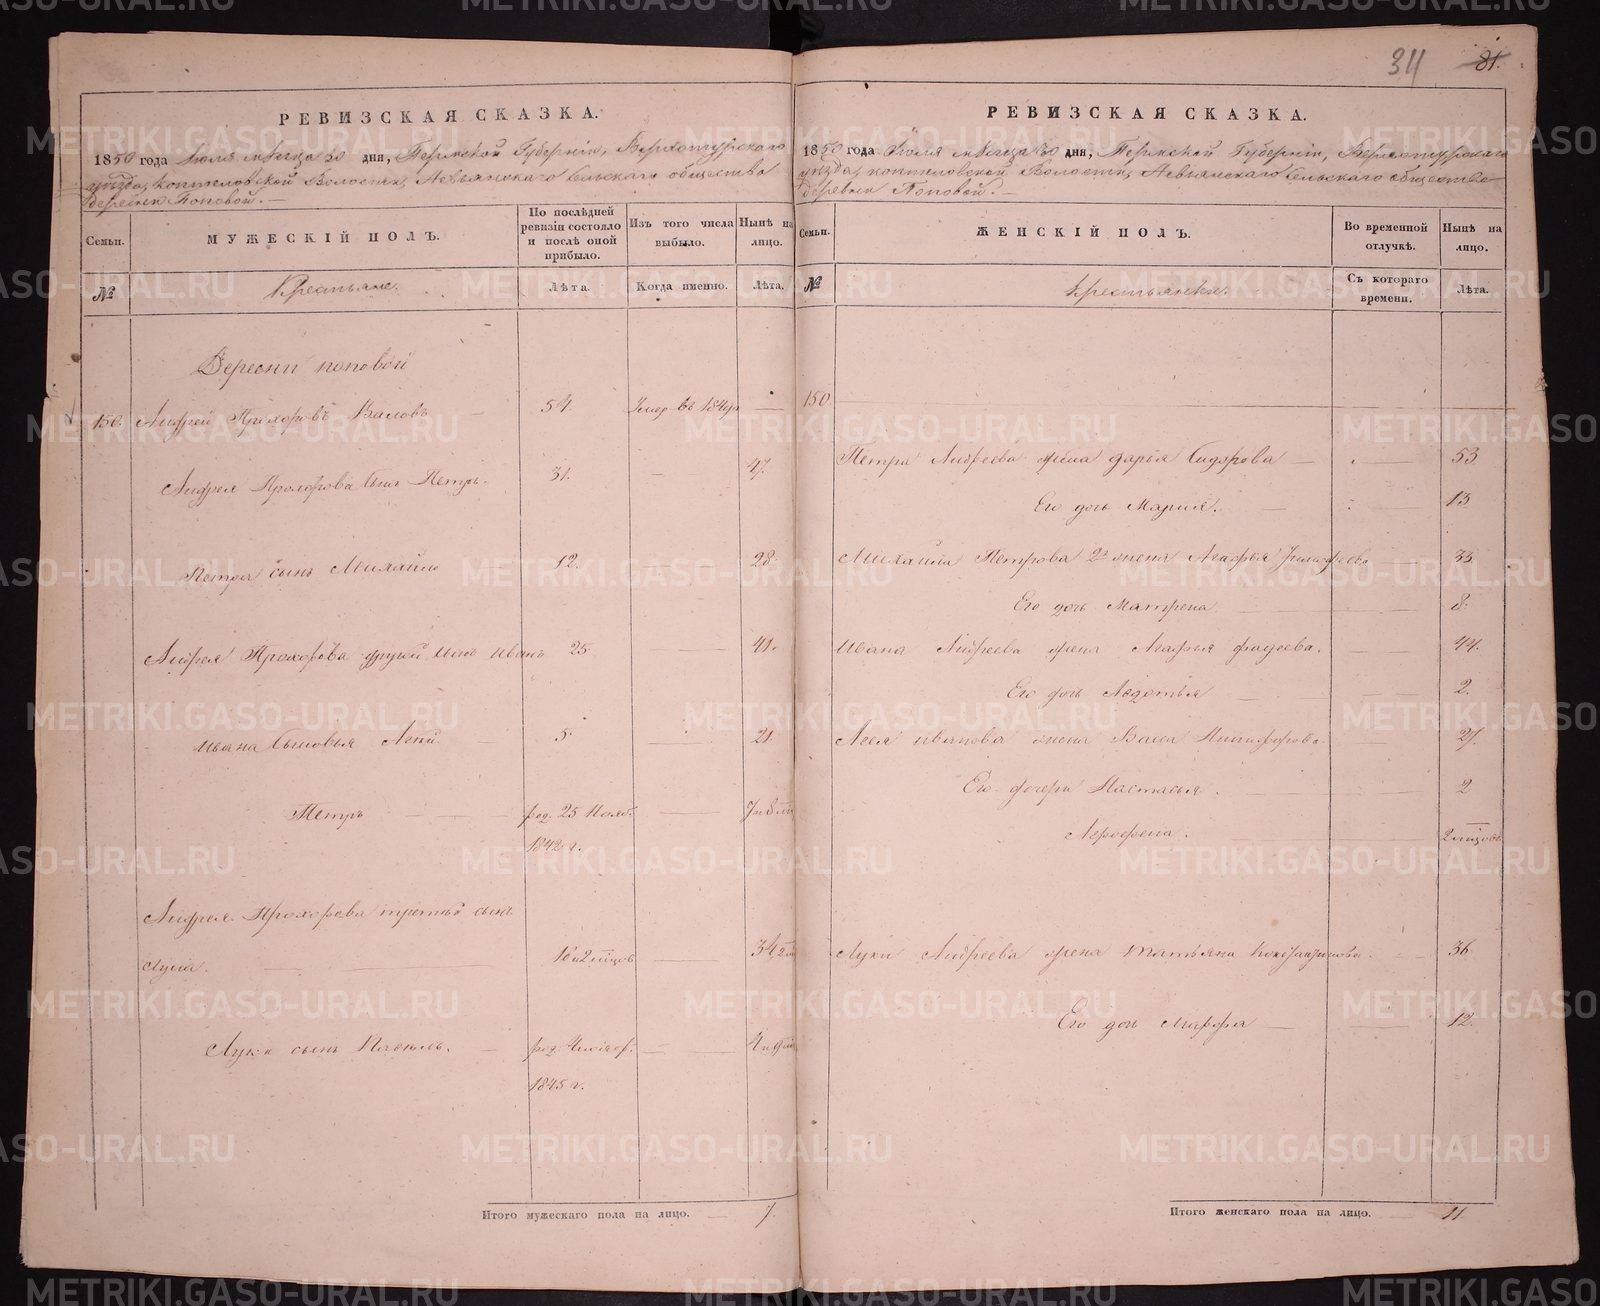 34 81.
РЕВИЗСКАЯ СКАЗКА.
1850 года Июля месяца 30 дня, Пермской Губернии, Верхотурскаго
уезда, коптеловской Волости, Невьянскаго сельскаго общества
деревни Поповой.
Семьи.
МУЖЕСКІЙ ПОЛЪ.
По послѣдней ревизіи состояло и послѣ оной прибыло.
Изъ того числа выбыло.
Нынѣ на лицо.
№
Крестьяне.
Лѣта.
Когда именно.
Лѣта.
Деревни поповой
150. Андрей Прохоровъ 54. Умер въ —
Андрея Прохорова сынъ Петръ. 31. — 47.
Петра сынъ Михайло 12. — 28.
Андрея Прохорова другой сынъ Иванъ 25 — 41.
Ивана сыновья 5. — 21.
Петръ — род. 25 Нояб. — 7 и 8
1842 г.
Андрея Прохорова третьй сынъ
Лука. — 18 и 2 мсцов — 34,2
Луки сынъ — род. — 4 и 9
1845 г.
Итого мужескаго пола на лицо. — 7.
РЕВИЗСКАЯ СКАЗКА.
1850 года Июля месяца 30 дня, Пермской Губернии, Верхотурскаго
уезда, коптеловской Волости, Невьянскаго сельскаго общества
деревни Поповой. —
Семьи.
ЖЕНСКІЙ ПОЛЪ.
Во временной отлучкѣ.
Нынѣ на лицо.
№
Крестьянскій.
Съ котораго времени.
Лѣта.
150
Петра Андреева жена дарья Сидорова — 53
Его дочь Мария. — 13
Михайла Петрова 2я жена Агафья — 33
Его дочь Матрена — 8.
Ивана Андреева жена Агафья фадеева. — 44.
Его дочь Авдотья — 2.
ивановa жена Васса Никифорова — 27.
Его дочери Настасья. — 2
Агрофена. — 2 мсцовъ
Луки Андреева жена татьяна — 36.
Его дочь — 12.
Итого женскаго пола на лицо. — 11.
METRIKI.GASO-URAL.RU